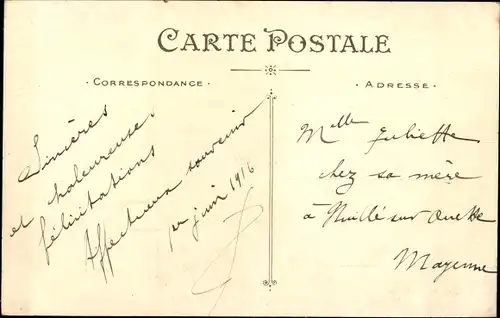 CARTE POSTALE
CORRESPONDANCE
Sincères
et chaleureuses
félicitations
Affectueux souvenir
1er juin 1916
ADRESSE
Melle Juliette
chez sa mère
à Nuillé sur Ouette
Mayenne